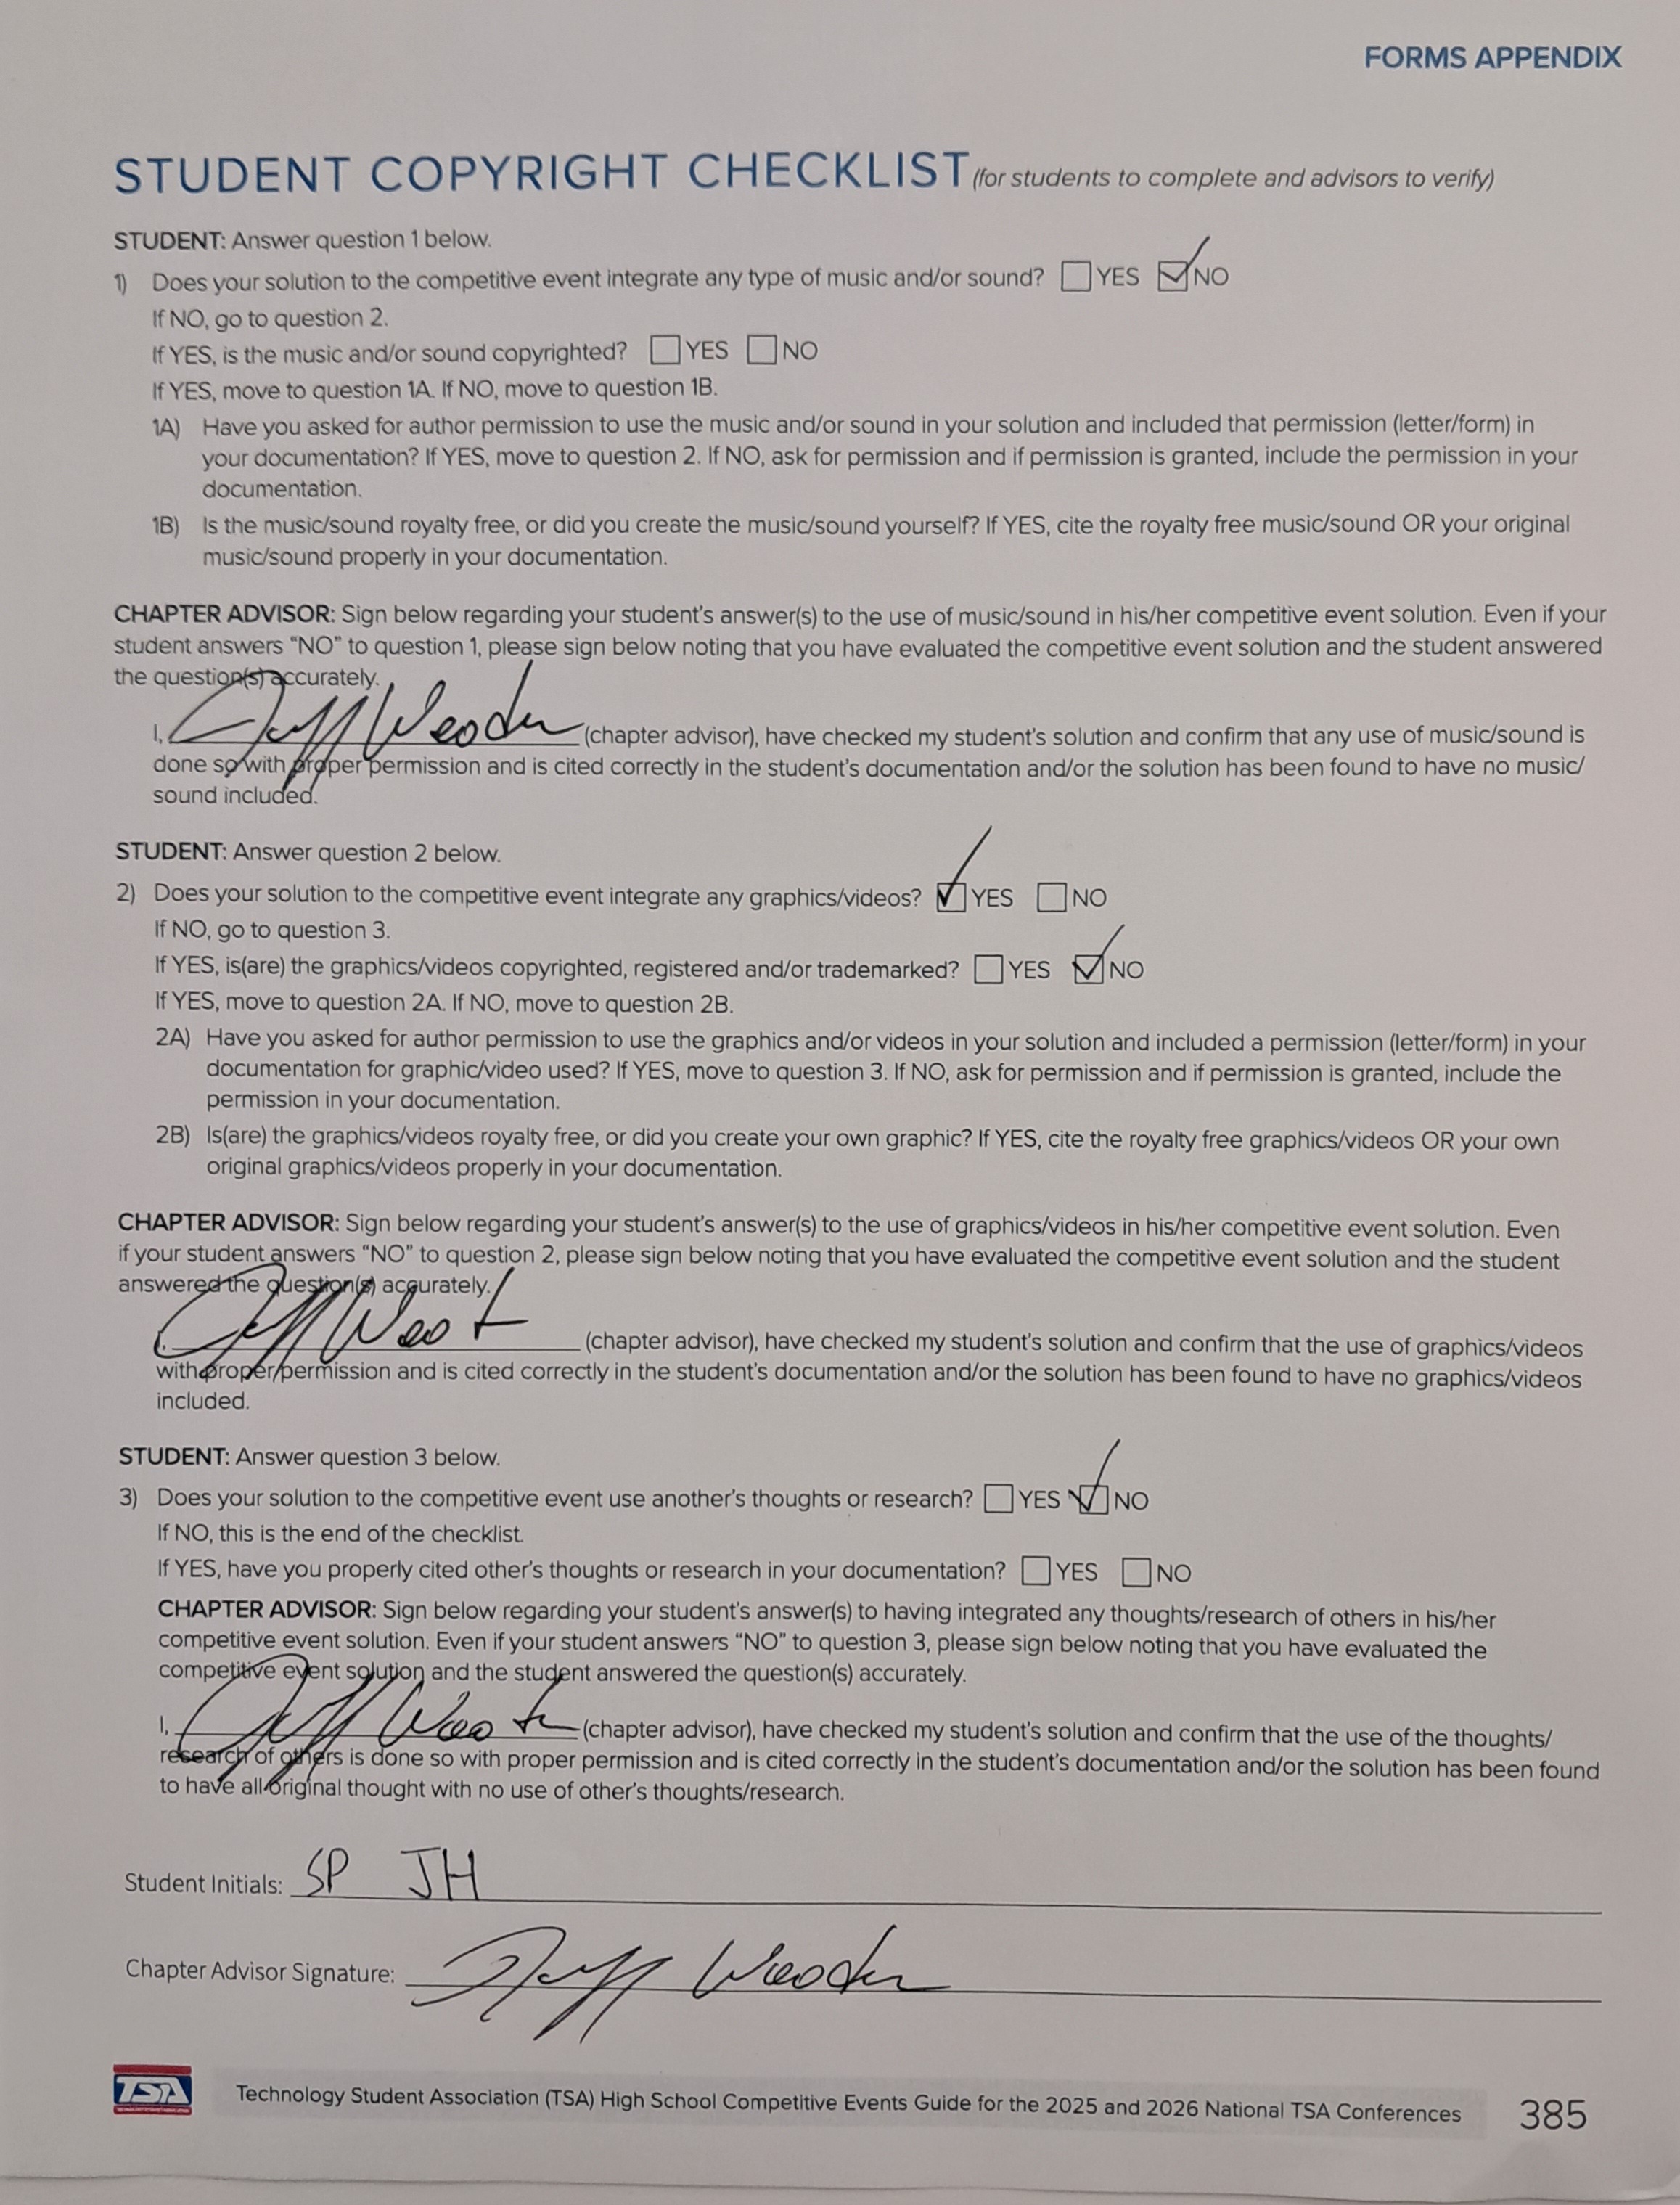 FORMS APPENDIX
STUDENT COPYRIGHT CHECKLIST (for students to complete and advisors to verify)
STUDENT: Answer question 1 below.
1) Does your solution to the competitive event integrate any type of music and/or sound? YES NO
If NO, go to question 2.
If YES, is the music and/or sound copyrighted? YES NO
If YES, move to question 1A. If NO, move to question 1B.
1A) Have you asked for author permission to use the music and/or sound in your solution and included that permission (letter/form) in
your documentation? If YES, move to question 2. If NO, ask for permission and if permission is granted, include the permission in your
documentation.
1B) Is the music/sound royalty free, or did you create the music/sound yourself? If YES, cite the royalty free music/sound OR your original
music/sound properly in your documentation.
CHAPTER ADVISOR: Sign below regarding your student's answer(s) to the use of music/sound in his/her competitive event solution. Even if your
student answers “NO” to question 1, please sign below noting that you have evaluated the competitive event solution and the student answered
the question(s) accurately.
I, Jeff (chapter advisor), have checked my student's solution and confirm that any use of music/sound is
done so with proper permission and is cited correctly in the student's documentation and/or the solution has been found to have no music/
sound included.
STUDENT: Answer question 2 below.
2) Does your solution to the competitive event integrate any graphics/videos? YES NO
If NO, go to question 3.
If YES, is(are) the graphics/videos copyrighted, registered and/or trademarked? YES NO
If YES, move to question 2A. If NO, move to question 2B.
2A) Have you asked for author permission to use the graphics and/or videos in your solution and included a permission (letter/form) in your
documentation for graphic/video used? If YES, move to question 3. If NO, ask for permission and if permission is granted, include the
permission in your documentation.
2B) Is(are) the graphics/videos royalty free, or did you create your own graphic? If YES, cite the royalty free graphics/videos OR your own
original graphics/videos properly in your documentation.
CHAPTER ADVISOR: Sign below regarding your student's answer(s) to the use of graphics/videos in his/her competitive event solution. Even
if your student answers “NO” to question 2, please sign below noting that you have evaluated the competitive event solution and the student
answered the question(s) accurately.
I, Jeff (chapter advisor), have checked my student's solution and confirm that the use of graphics/videos
with proper permission and is cited correctly in the student's documentation and/or the solution has been found to have no graphics/videos
included.
STUDENT: Answer question 3 below.
3) Does your solution to the competitive event use another's thoughts or research? YES NO
If NO, this is the end of the checklist.
If YES, have you properly cited other's thoughts or research in your documentation? YES NO
CHAPTER ADVISOR: Sign below regarding your student's answer(s) to having integrated any thoughts/research of others in his/her
competitive event solution. Even if your student answers “NO” to question 3, please sign below noting that you have evaluated the
competitive event solution and the student answered the question(s) accurately.
I, Jeff (chapter advisor), have checked my student's solution and confirm that the use of the thoughts/
research of others is done so with proper permission and is cited correctly in the student's documentation and/or the solution has been found
to have all original thought with no use of other's thoughts/research.
Student Initials: SP JH
Chapter Advisor Signature: Jeff
TSA Technology Student Association (TSA) High School Competitive Events Guide for the 2025 and 2026 National TSA Conferences 385